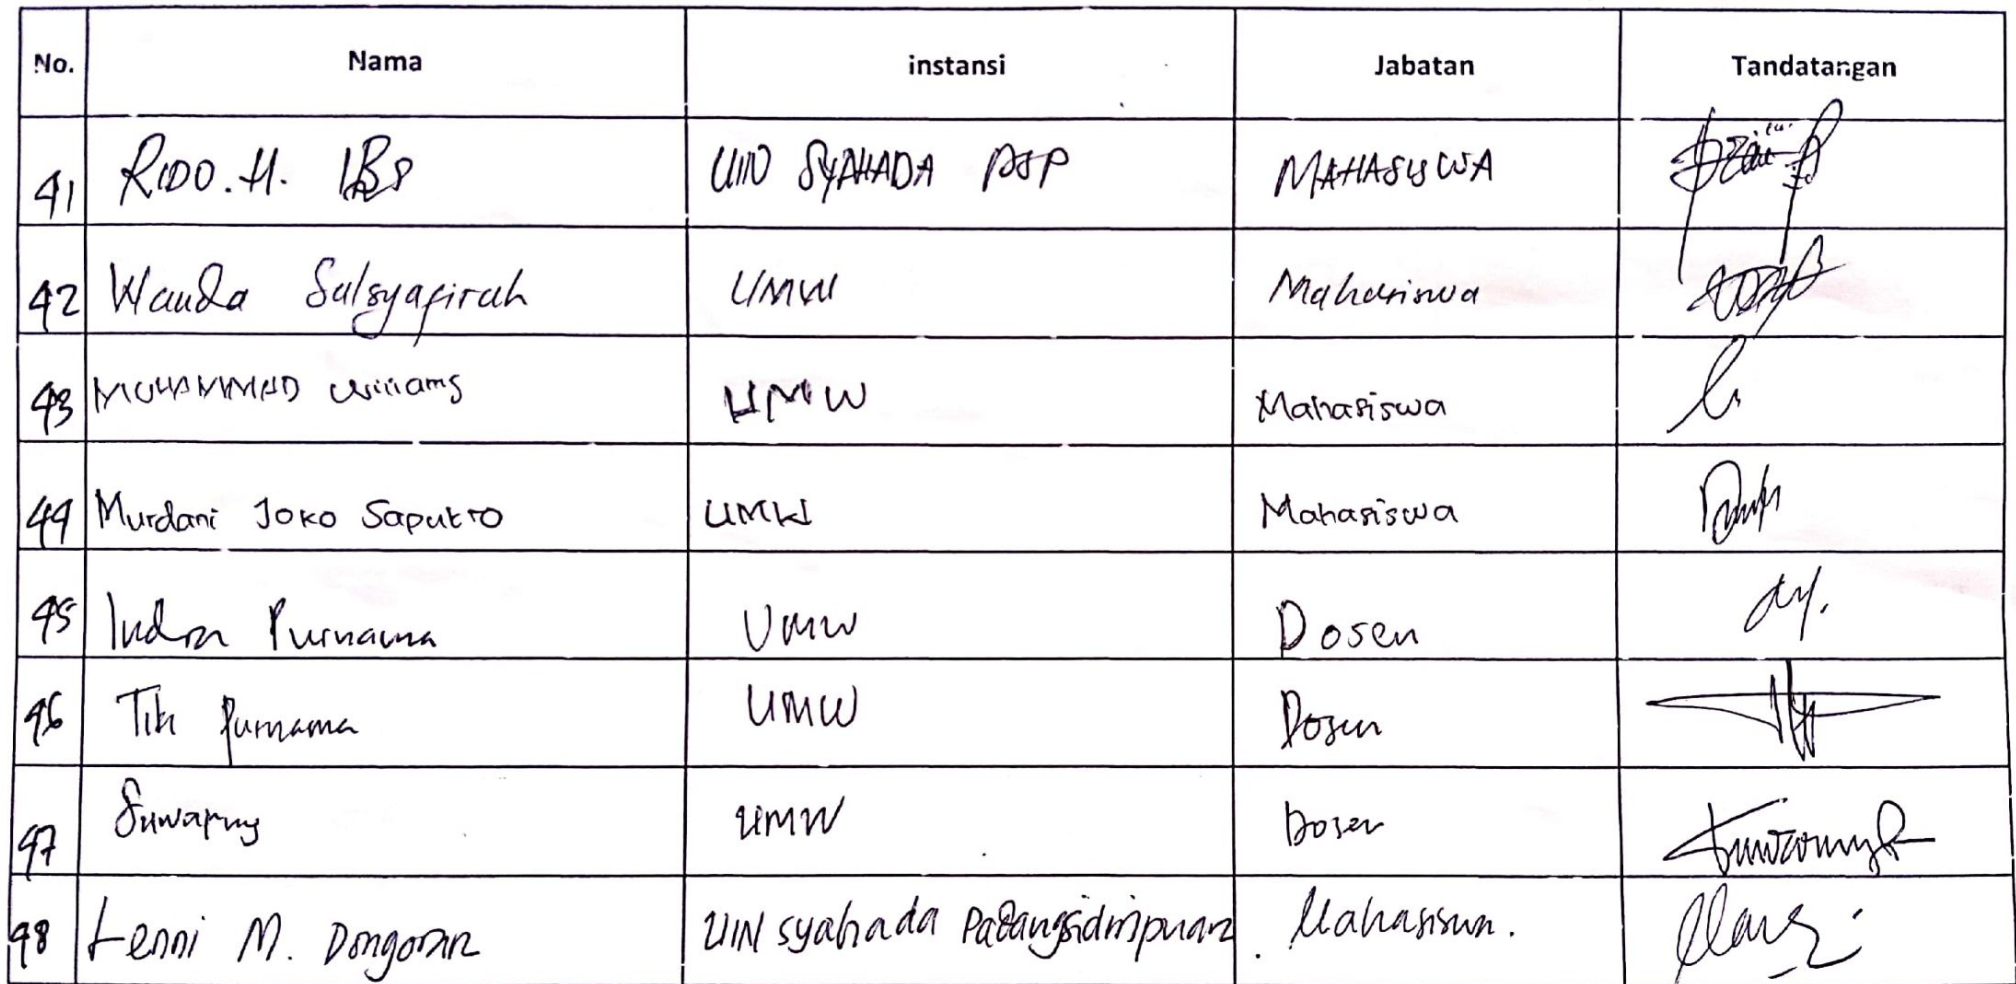 No. Nama instansi Jabatan Tandatangan
41 RIDO. H. IBS UIN SYAHADA PSP MAHASISWA
42 Wanda Salsyafirah UMW Mahasiswa
43 MUHAMMAD Williams UMW Mahasiswa
44 Murdani Joko Saputro UMW Mahasiswa
45 Indra Purnama UMW Dosen
46 Titi Purnama UMW Dosen
47 UMW Dosen
48 Lenni M. Dongoran UIN syahada Padangsidimpuan Mahasiswa.